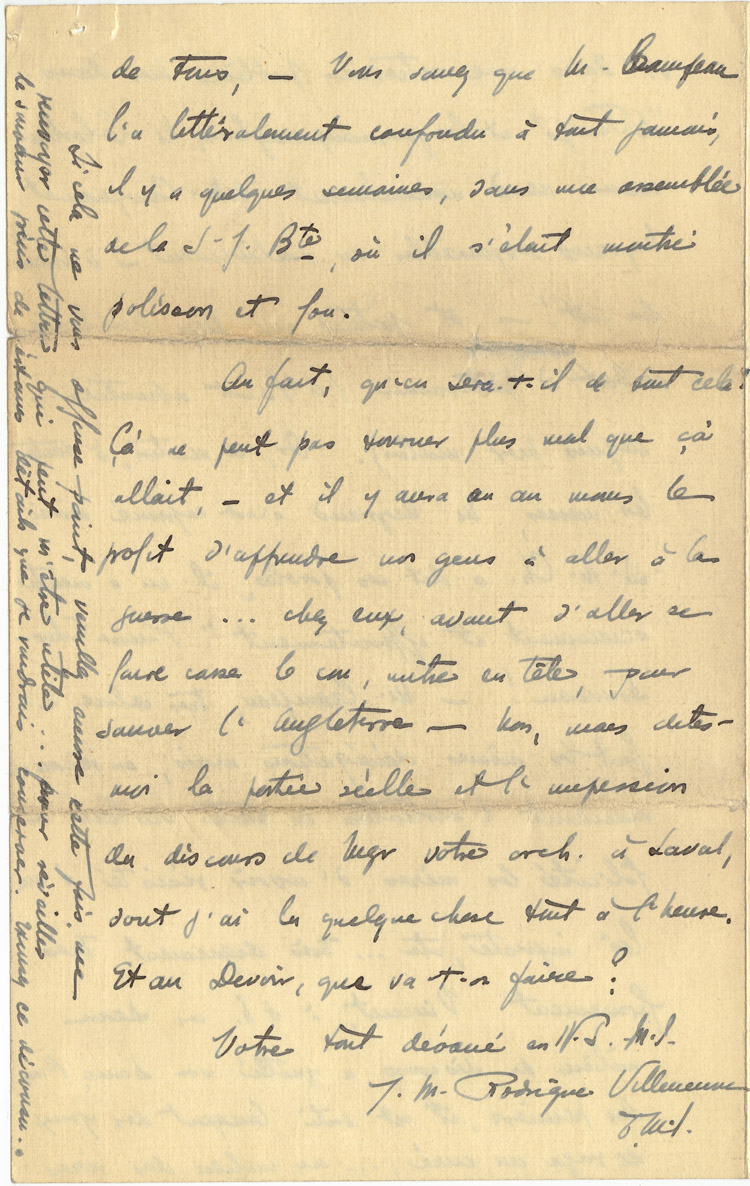 de tous, — Vous savez que M. Beaupeau
l'a littéralement confondu à tout jamais,
il y a quelques semaines, dans une assemblée
de la S-J. Bte, où il s'était montré
polisson et fou.
Au fait, qu'en sera-t-il de tout cela?
Çà ne peut pas tourner plus mal que çà
allait, — et il y aura eu au moins le
profit d'apprendre nos gens à aller à la
guerre ... chez eux, avant d'aller se
faire casser le cou, mitre en tête, pour
sauver l'Angleterre — Non, mais dites-
moi la portée réelle et l'impression
du discours de Mgr votre arch. à Laval,
dont j'ai lu quelque chose tout à l'heure.
Et au Devoir, que va-t-on faire?
Votre tout dévoué en N.S. M.I.
J. M. Rodrigue Villeneuve
O.M.I.
Si cela ne vous offense point, veuillez encore cette fois, me
renvoyer cette lettre qui peut m'être utile ... pour réveiller
le souvenir précis de certains détails que je voudrais conserver. Excusez ce décousu..